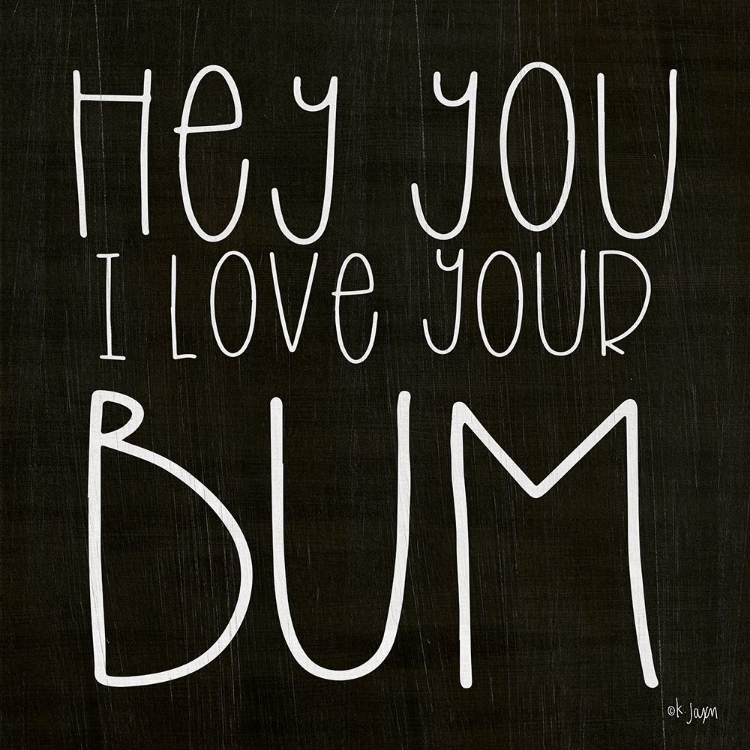 Hey YOU
I LOVe YOUR
BUM
©K Jaxn